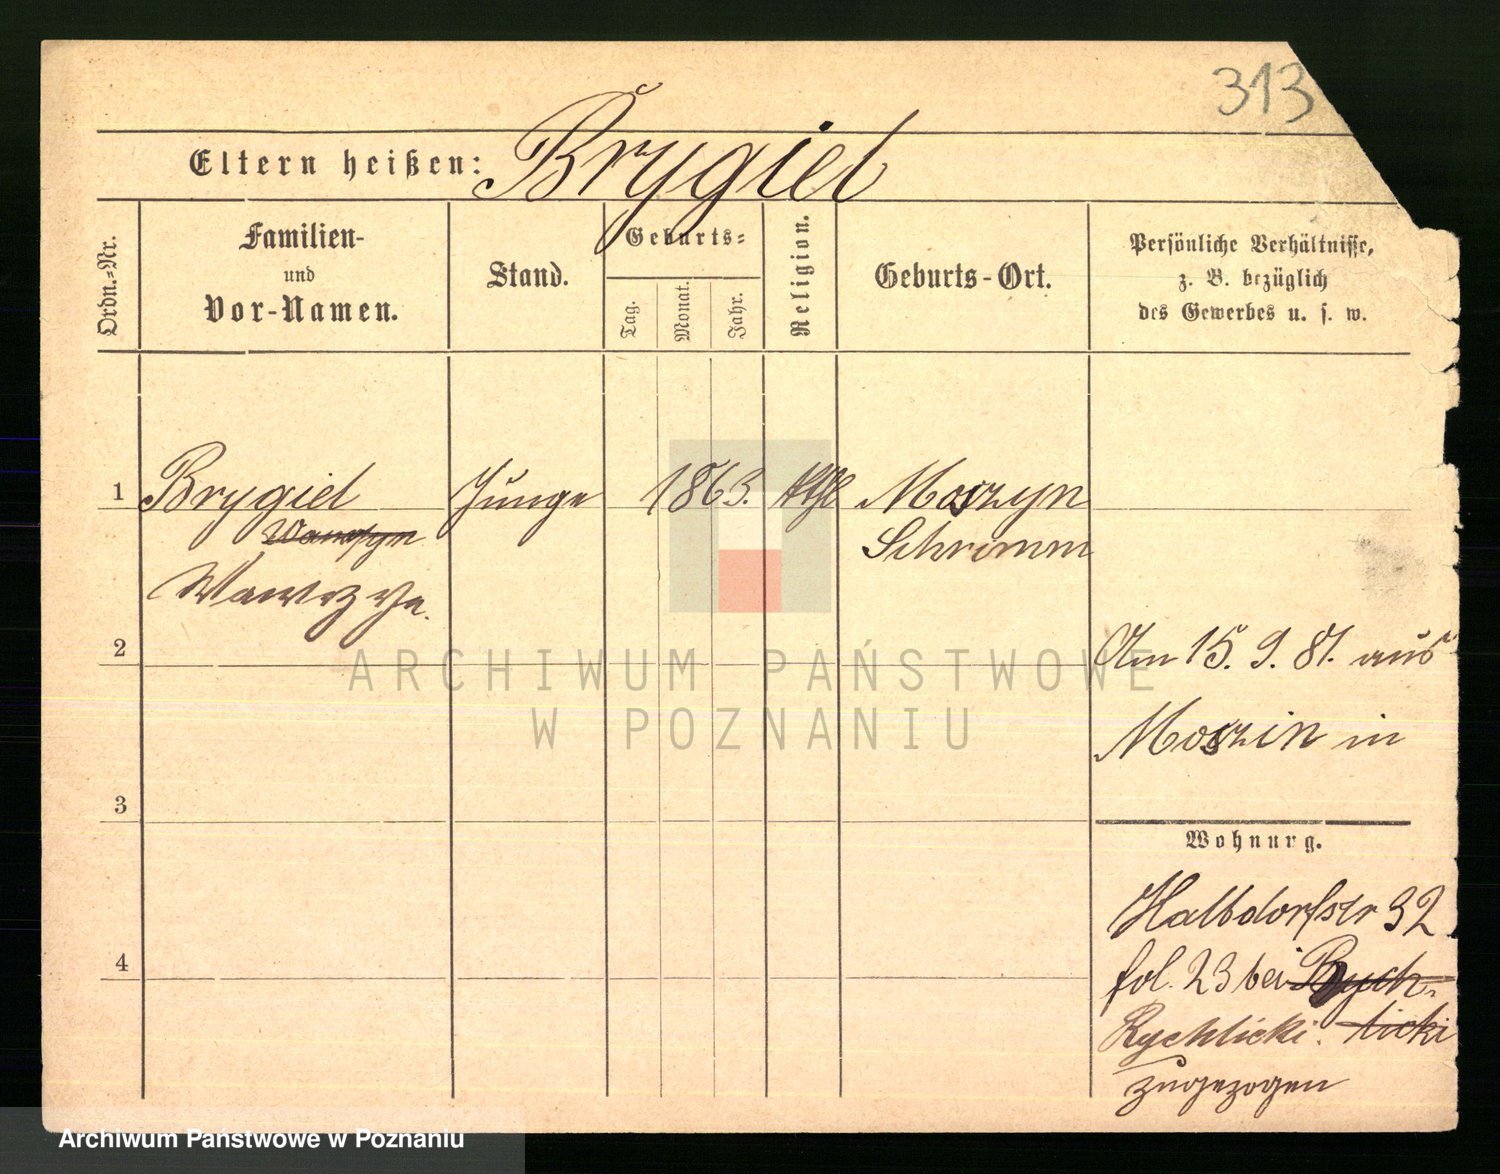 313
Eltern heißen: Brygiel
Ordn.=Nr.
Familien-
und
Vor-Namen.
Stand.
Geburts=
Tag.
Monat.
Jahr.
Religion.
Geburts-Ort.
Persönliche Verhältnisse,
z. B. bezüglich
des Gewerbes u. s. w.
1 Brygiel Junge 1863. kthl Moszyn
Schrimm
Wawrzyn.
2
Am 15. 9. 81. aus
Moszin in
3
Wohnung.
Halbdorfstr 32
fol. 23 bei Bych-
4
Rychlicki. licki
zugezogen
ARCHIWUM PAŃSTWOWE
W POZNANIU
Archiwum Państwowe w Poznaniu